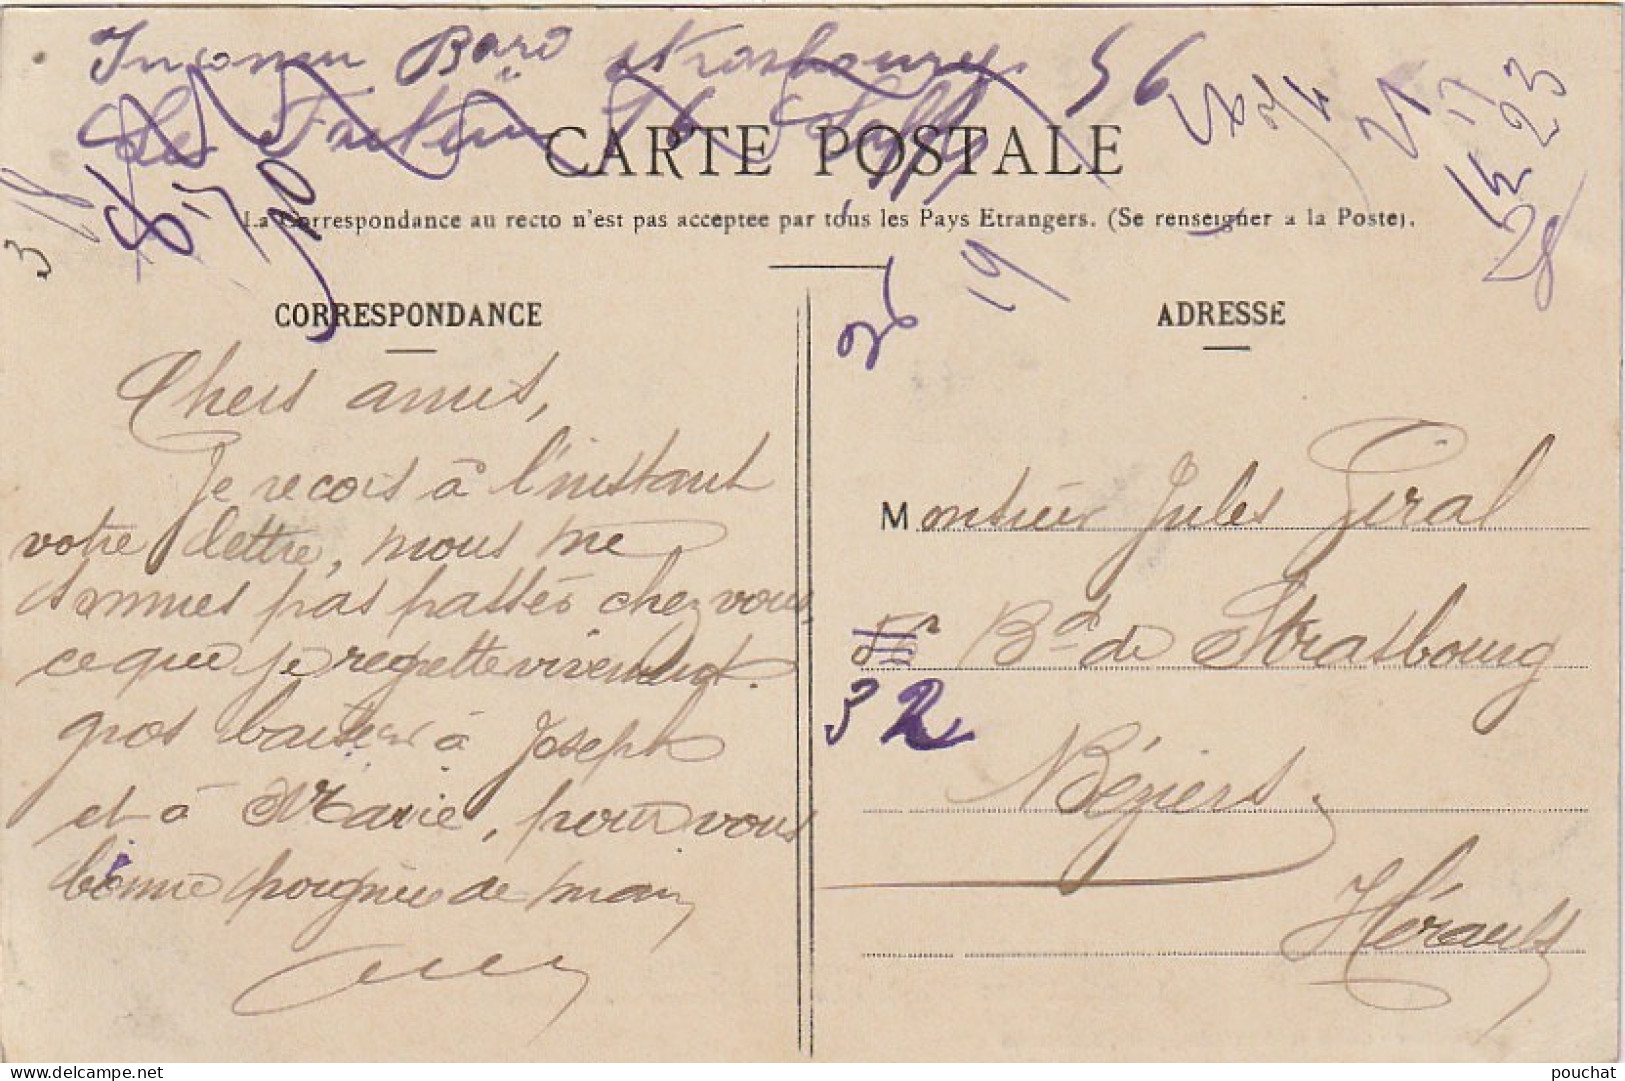 Inconnu Bard Strasbourg 56
Le Facteur 16
21 17 23
28
3 18
CARTE POSTALE
La Correspondance au recto n'est pas acceptee par tous les Pays Etrangers. (Se renseigner a la Poste).
26 19
CORRESPONDANCE
ADRESSE
Chers amis,
Je recois à l'instant
votre lettre, nous ne
sommes pas passés chez vous
ce que je regrette vivement.
gros baiser à Joseph
et à Marie, pour vous
bonne poignée de main
Monsieur Jules Giral
Bd de Strasbourg
32
Béziers
Hérault
pouchat